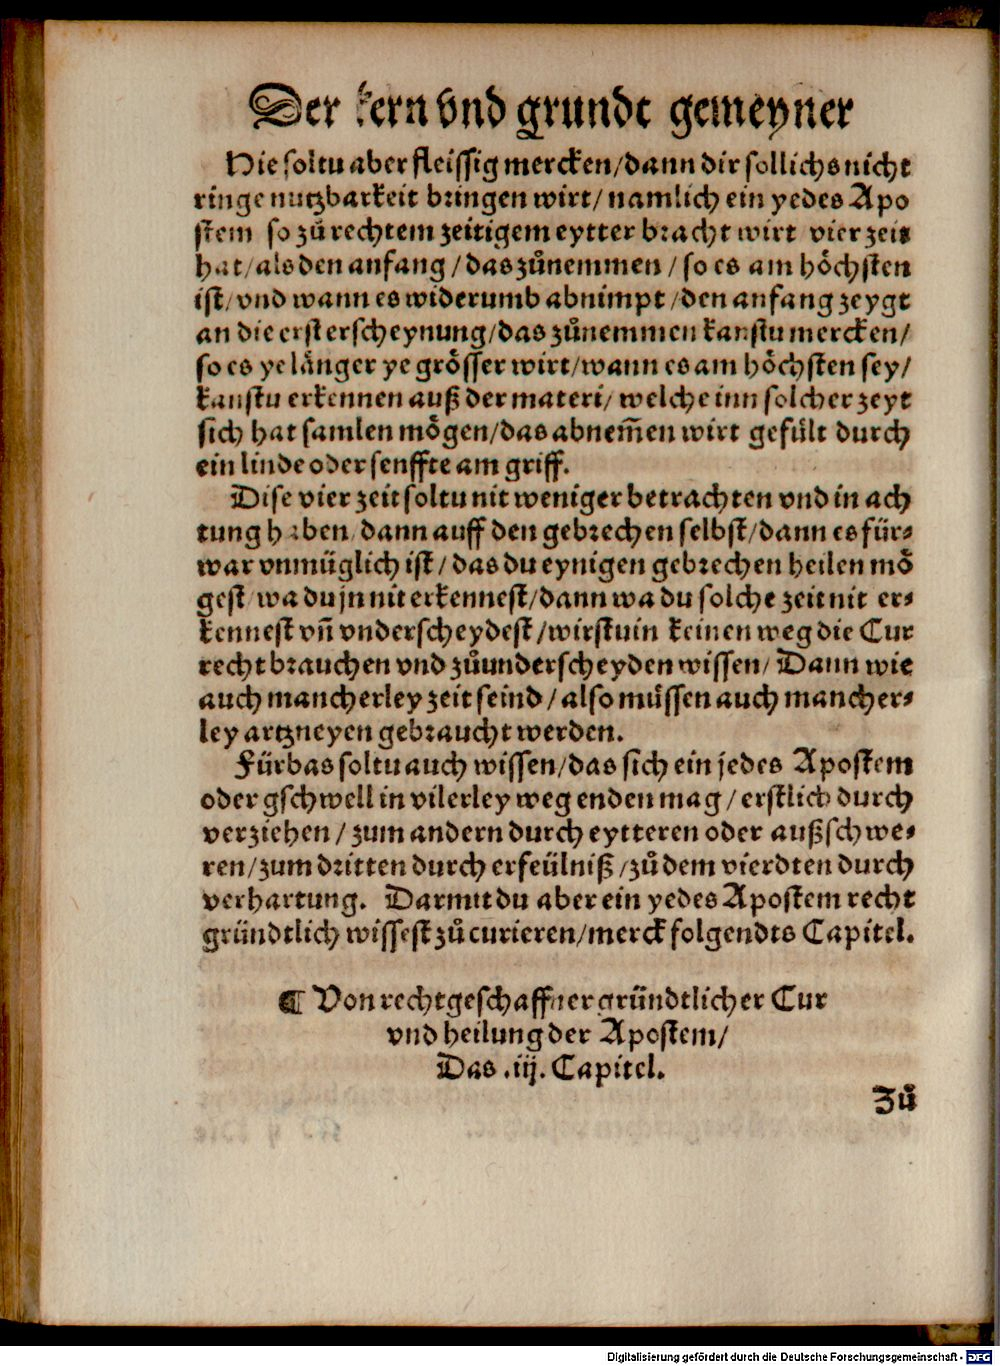 Der kern vnd grundt gemeyner
Hie soltu aber fleissig mercken/dann dir sollichs nicht
ringe nutzbarkeit bringen wirt/ namlich ein yedes Apo
stem so zů rechtem zeitigem eytter bracht wirt vier zeit
hat/als den anfang/das zůnemmen/so es am hoͤchsten
ist/vnd wann es widerumb abnimpt/den anfang zeygt
an die erst erscheynung/das zůnemmen kanstu mercken/
so es ye laͤnger ye groͤsser wirt/wann es am hoͤchsten sey/
kanstu erkennen auß der materi/ welche inn solcher zeyt
sich hat samlen moͤgen/das abnem̃en wirt gefült durch
ein linde oder senffte am griff.
Dise vier zeit soltu nit weniger betrachten vnd in ach
tung haben/dann auff den gebrechen selbst/dann es für⸗
war vnmüglich ist/das du eynigen gebrechen heilen moͤ
gest/wa du jn nit erkennest/dann wa du solche zeit nit er⸗
kennest vñ vnderscheydest/wirstu in keinen weg die Cur
recht brauchen vnd zůunderscheyden wissen/ Dann wie
auch mancherley zeit seind/also müssen auch mancher⸗
ley artzneyen gebraucht werden.
Fürbas soltu auch wissen/das sich ein jedes Apostem
oder gschwell in vilerley weg enden mag/erstlich durch
verziehen/zum andern durch eytteren oder außschwe⸗
ren/zum dritten durch erfeülniß/zů dem vierdten durch
verhartung. Darmit du aber ein yedes Apostem recht
gründtlich wissest zů curieren/merck folgendts Capitel.
¶ Von rechtgeschaffner gründtlicher Cur
vnd heilung der Apostem/
Das .iij. Capitel.
Zů
Digitalisierung gefördert durch die Deutsche Forschungsgemeinschaft - DFG